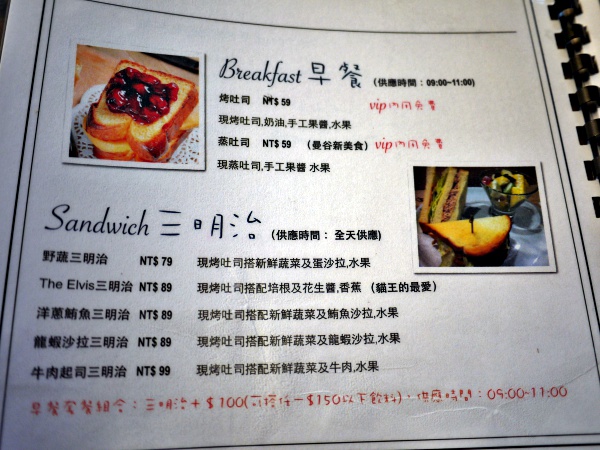 Breakfast 早餐 (供應時間：09:00~11:00)
烤吐司 NT$ 59 vip內用免費
現烤吐司,奶油,手工果醬,水果
蒸吐司 NT$ 59 (曼谷新美食) vip內用免費
現蒸吐司,手工果醬 水果
Sandwich 三明治 (供應時間： 全天供應)
野蔬三明治 NT$ 79 現烤吐司搭新鮮蔬菜及蛋沙拉,水果
The Elvis三明治 NT$ 89 現烤吐司搭配培根及花生醬,香蕉 (貓王的最愛)
洋蔥鮪魚三明治 NT$ 89 現烤吐司搭配新鮮蔬菜及鮪魚沙拉,水果
龍蝦沙拉三明治 NT$ 89 現烤吐司搭配新鮮蔬菜及龍蝦沙拉,水果
牛肉起司三明治 NT$ 99 現烤吐司搭配新鮮蔬菜及牛肉,水果
早餐套餐組合：三明治+$100(可搭任一$150以下飲料)，供應時間：09:00-11:00